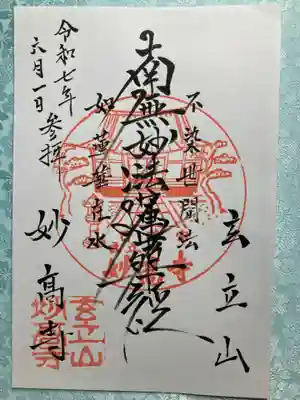 玄立山
不染世間法
南無妙法蓮華經
如蓮華在水
令和七年
六月一日参拝
妙高寺
玄立山
妙高寺